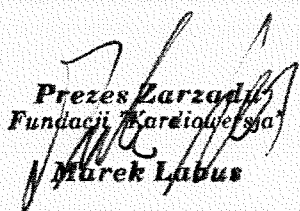 Prezes Zarządu
Fundacji "Kardiowersja"
Marek Labus